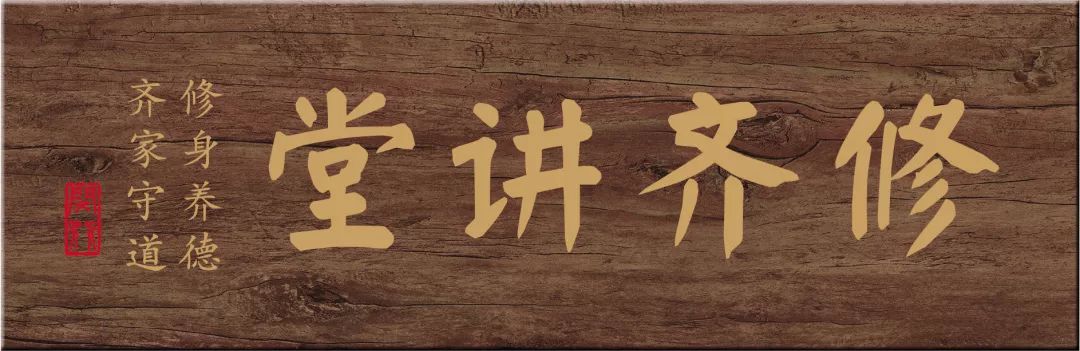 修齐讲堂
修身养德
齐家守道